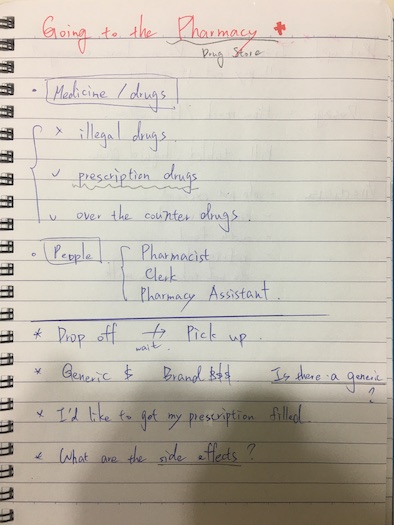 Going to the Pharmacy
Drug Store
Medicine / drugs
x illegal drugs.
v prescription drugs
v over the counter drugs.
People
Pharmacist
Clerk
Pharmacy Assistant.
* Drop off → Pick up.
wait.
* Generic $ Brand $$$ Is there a generic
?
* I'd like to get my prescription filled.
* What are the side effects?